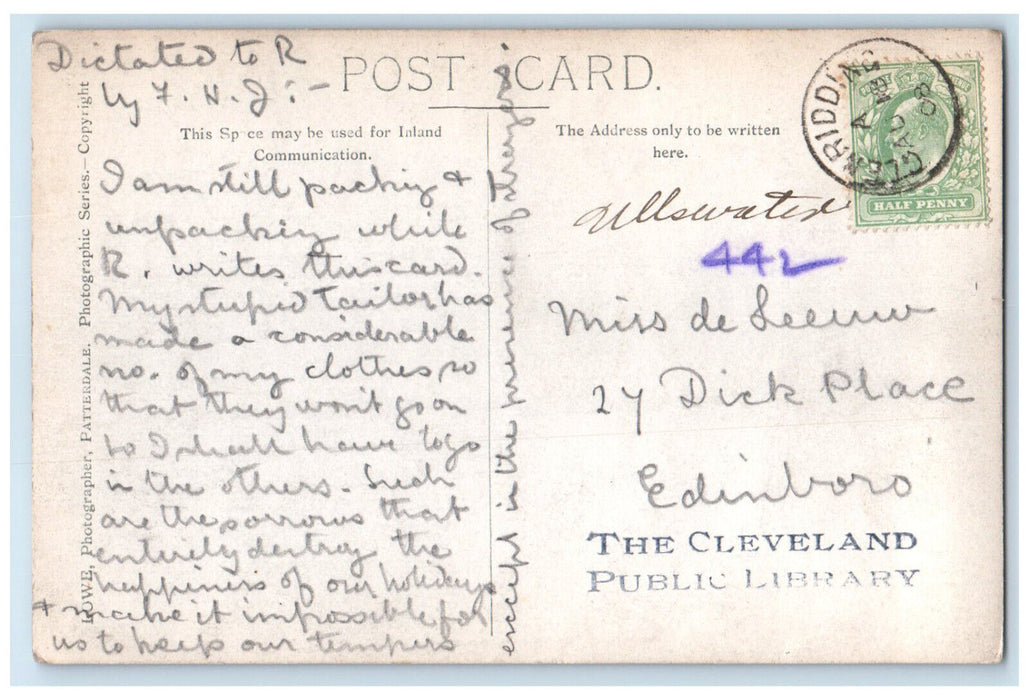 Dictated to R
by F. H. J :-
POST CARD.
This Space may be used for Inland
Communication.
The Address only to be written
here.
LOWE, Photographer, PATTERDALE. Photographic Series.—Copyright
I am still packing &
unpacking while
R. writes this card.
My stupid tailor has
made a considerable
no. of my clothes so
that they won't go on
so I shall have to go
in the others. Such
are the sorrows that
entirely destroy the
happiness of our holidays
& make it impossible for
us to keep our tempers
except in the presence of strangers
GLENRIDDING
AU 4
08
HALF PENNY
Ullswater
442
Miss de Leeuw
27 Dick Place
Edinboro
THE CLEVELAND
PUBLIC LIBRARY